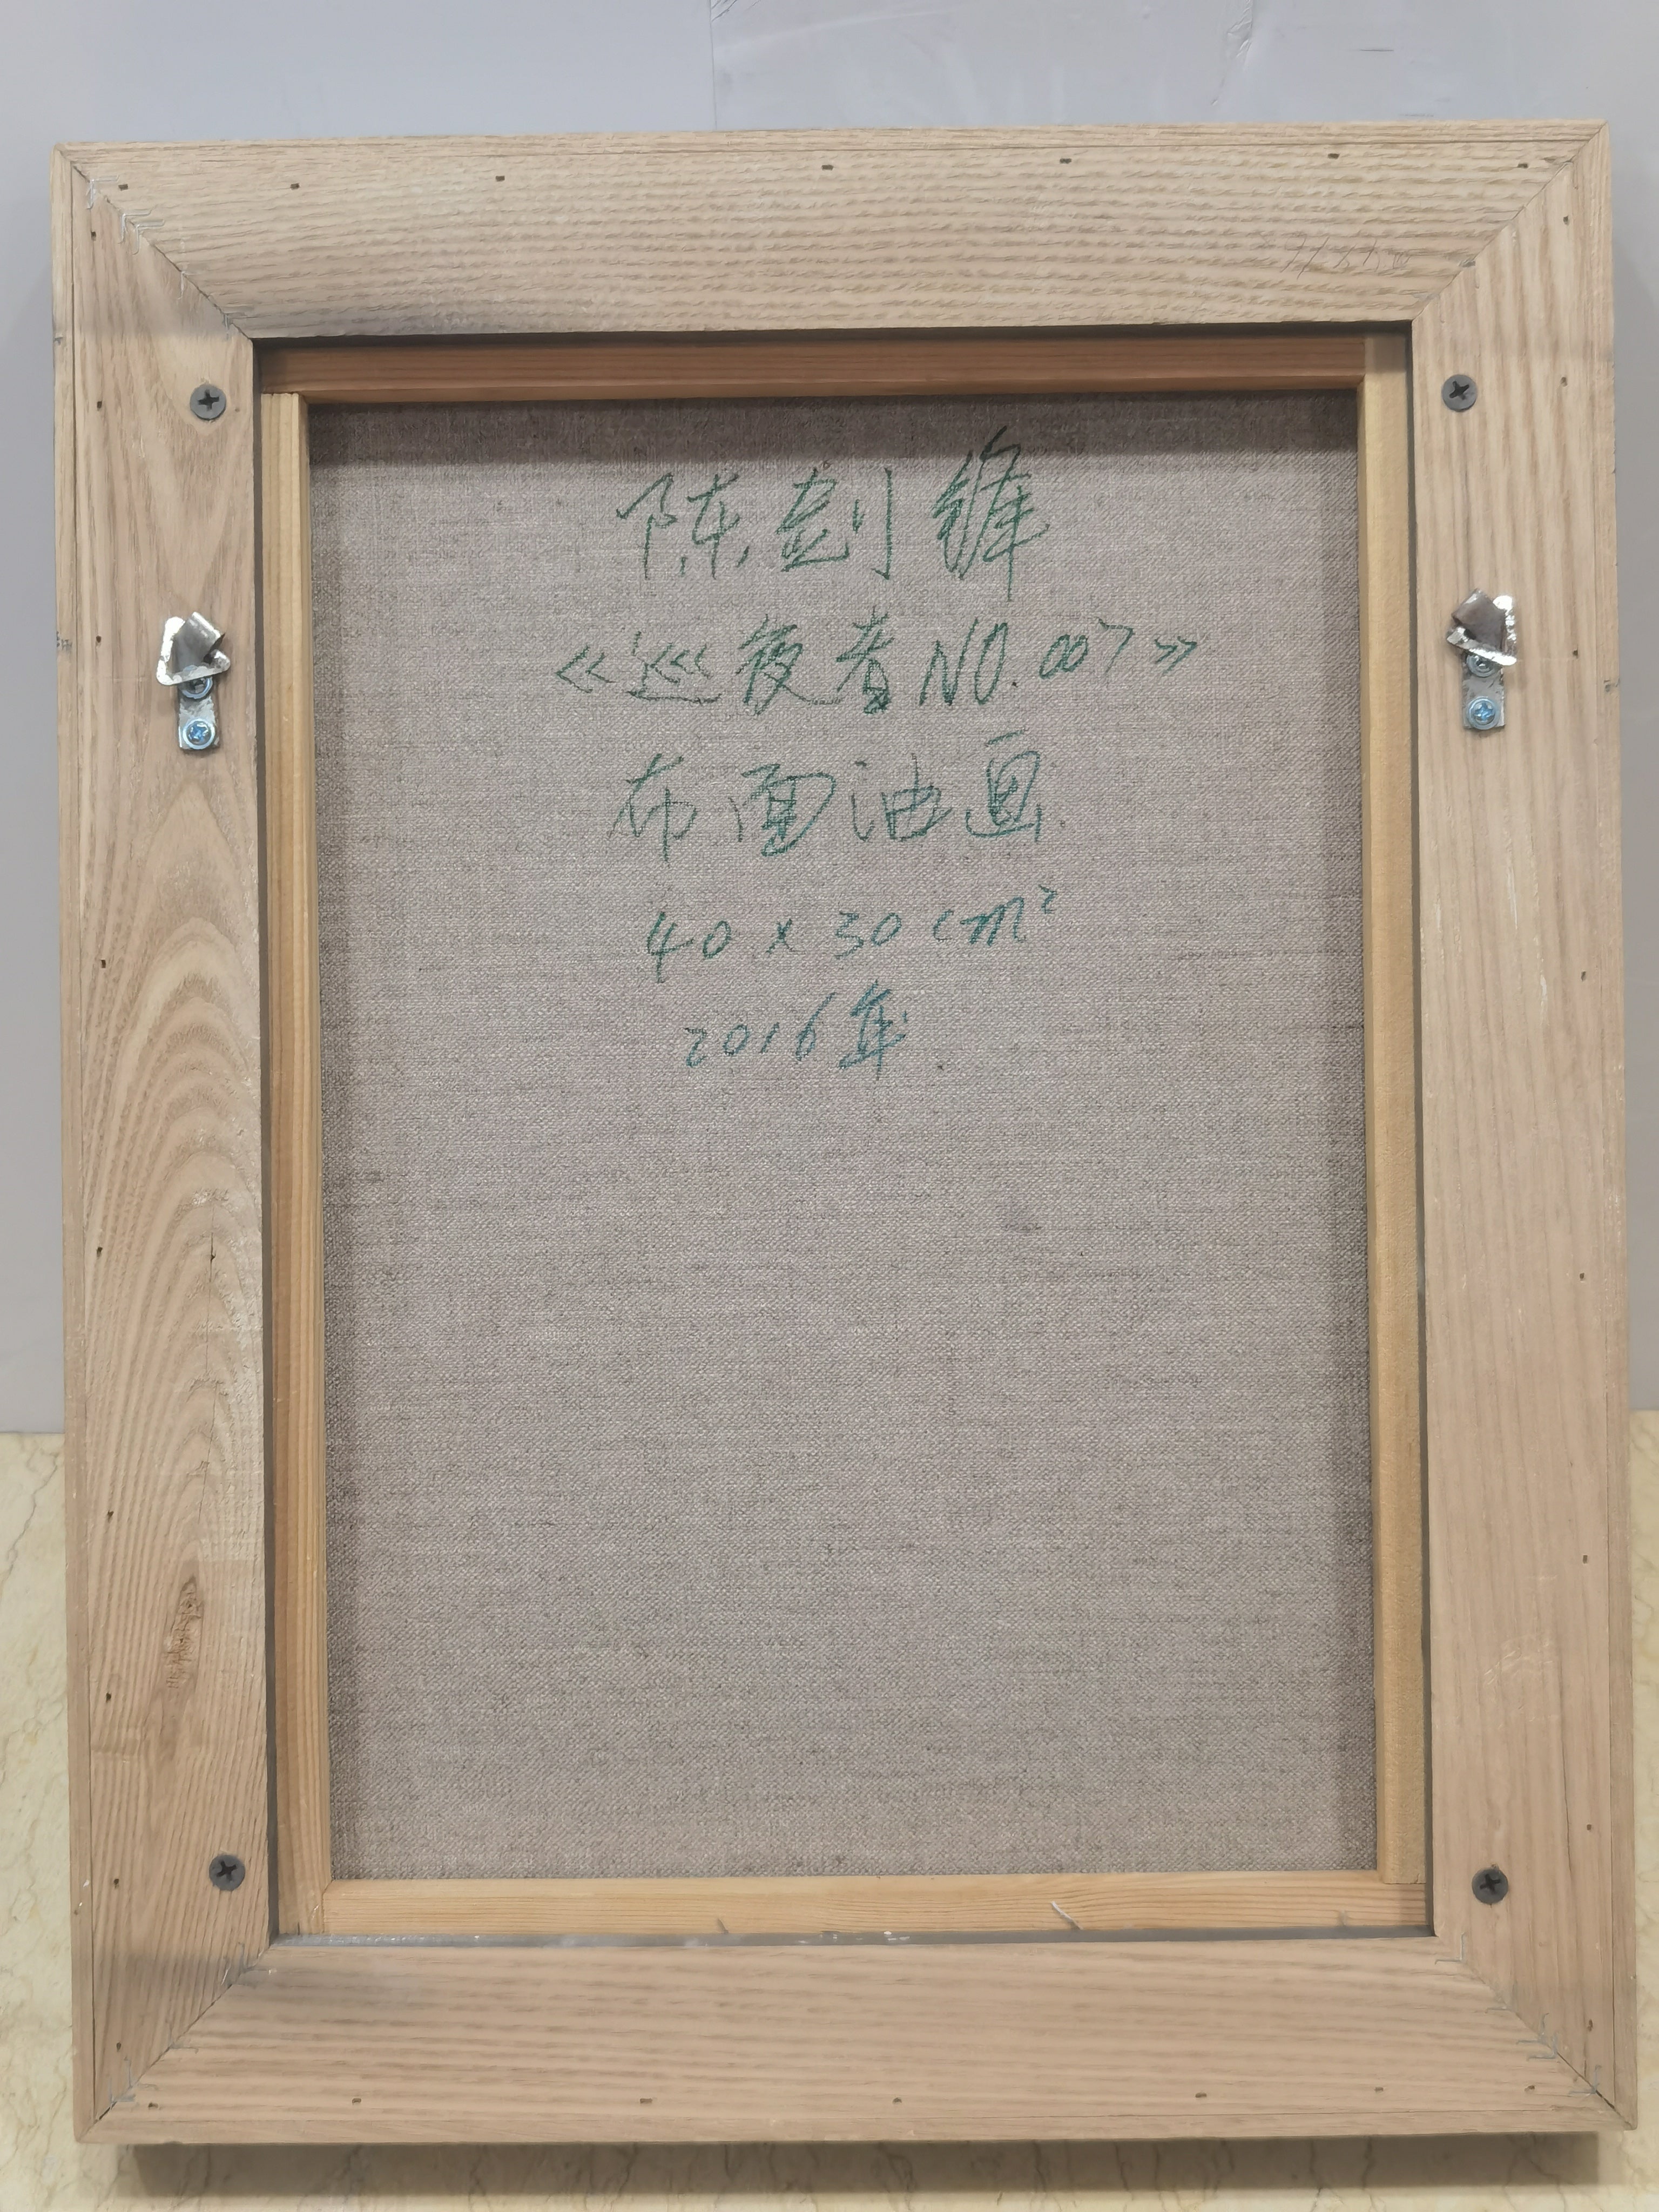 陈剑锋
《巡夜者NO.007》
布面油画
40x30cm²
2016年